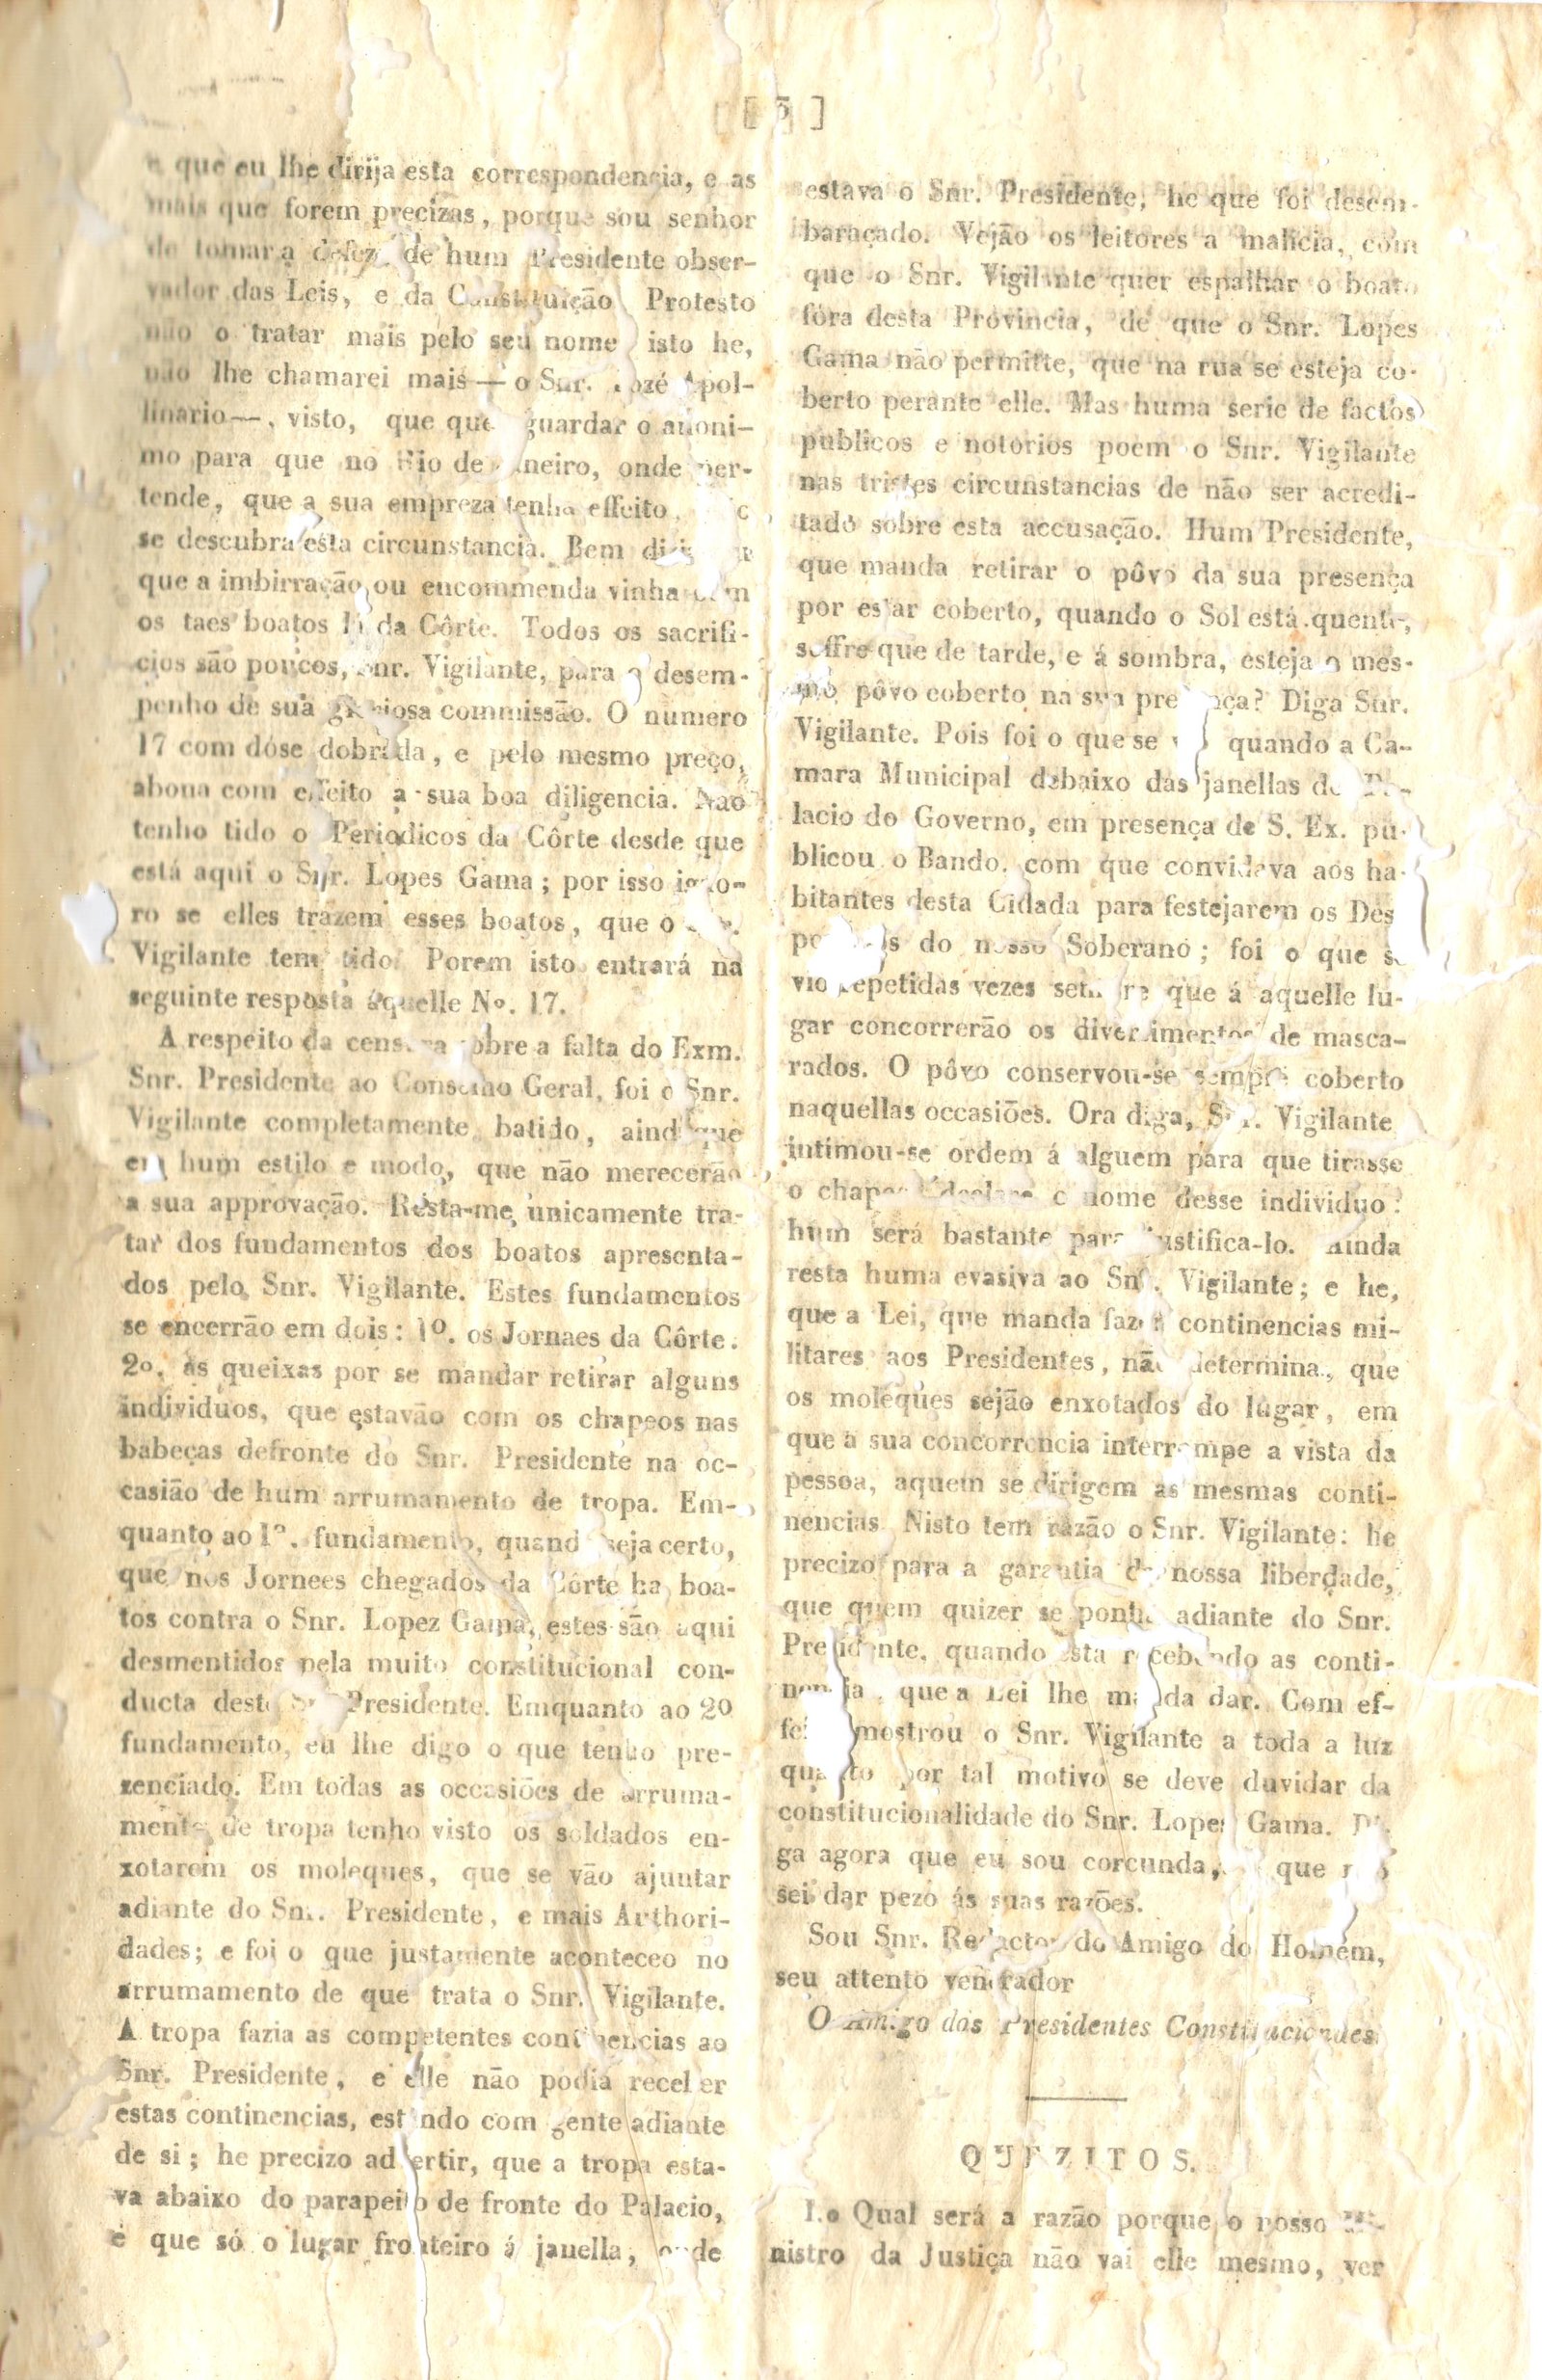 [ 5 ]
que eu lhe dirija esta correspondencia, e as
mais que forem precizas, porque sou senhor
de tomar a defeza de hum Presidente obser-
vador das Leis, e da Constituição Protesto
não o tratar mais pelo seu nome isto he,
não lhe chamarei mais — o Snr. Jozé Apol-
linario —, visto, que quer guardar o anoni-
mo para que no Rio de Janeiro, onde per-
tende, que a sua empreza tenha effeito,
se descubra esta circunstancia. Bem
que a imbirração ou encommenda vinha com
os taes boatos lá da Côrte. Todos os sacrifi-
cios são poucos, Snr. Vigilante, para o desem-
penho de sua commissão. O numero
17 com dóse dobrada, e pelo mesmo preço,
abona com effeito a sua boa diligencia. Não
tenho tido o Periodicos da Côrte desde que
está aqui o Snr. Lopes Gama; por isso igno-
ro se elles trazem esses boatos, que o Snr.
Vigilante tem tido. Porem isto entrará na
seguinte resposta áquelle Nº. 17.
A respeito da censura sobre a falta do Exm.
Snr. Presidente ao Conselho Geral, foi o Snr.
Vigilante completamente batido, ainda que
em hum estilo e modo, que não merecerão
a sua approvação. Resta-me unicamente tra-
tar dos fundamentos dos boatos apresenta-
dos pelo Snr. Vigilante. Estes fundamentos
se encerrão em dois: 1º. os Jornaes da Côrte.
2º. as queixas por se mandar retirar alguns
individuos, que estavão com os chapeos nas
babeças defronte do Snr. Presidente na oc-
casião de hum arrumamento de tropa. Em-
quanto ao 1º. fundamento, quando seja certo,
que nos Jornees chegados da Côrte ha boa-
tos contra o Snr. Lopez Gama, estes são aqui
desmentidos pela muito constitucional con-
ducta deste Snr. Presidente. Emquanto ao 2º
fundamento, eu lhe digo o que tenho pre-
zenciado. Em todas as occasiões de arruma-
mento de tropa tenho visto os soldados en-
xotarem os moleques, que se vão ajuntar
adiante do Snr. Presidente, e mais Arthori-
dades; e foi o que justamente aconteceo no
arrumamento de que trata o Snr. Vigilante.
A tropa fazia as competentes continencias ao
Snr. Presidente, e elle não podia receber
estas continencias, estando com gente adiante
de si; he precizo advertir, que a tropa esta-
va abaixo do parapeito de fronte do Palacio,
e que só o lugar fronteiro á janella, onde
estava o Snr. Presidente, he que foi desem-
baraçado. Vejão os leitores a malicia, com
que o Snr. Vigilante quer espalhar o boato
fóra desta Provincia, de que o Snr. Lopes
Gama não permitte, que na rua se esteja co-
berto perante elle. Mas huma serie de factos
publicos e notorios poem o Snr. Vigilante
nas tristes circunstancias de não ser acredi-
tado sobre esta accusação. Hum Presidente,
que manda retirar o pôvo da sua presença
por estar coberto, quando o Sol está quente,
soffre que de tarde, e á sombra, esteja o mes-
mo pôvo coberto na sua presença? Diga Snr.
Vigilante. Pois foi o que se vio quando a Ca-
mara Municipal debaixo das janellas do Pa-
lacio do Governo, em presença de S. Ex. pu-
blicou o Bando, com que convidava aos ha-
bitantes desta Cidada para festejarem os Des
do nosso Soberano; foi o que se
vio repetidas vezes sempre que á aquelle lu-
gar concorrerão os divertimentos de masca-
rados. O pôvo conservou-se sempre coberto
naquellas occasiões. Ora diga, Snr. Vigilante
intimou-se ordem á alguem para que tirasse
o chapeo declare o nome desse individuo:
hum será bastante para justifica-lo. Ainda
resta huma evasiva ao Snr. Vigilante; e he,
que a Lei, que manda fazer continencias mi-
litares aos Presidentes, não determina, que
os moleques sejão enxotados do lugar, em
que a sua concorrencia interrompe a vista da
pessoa, aquem se dirigem as mesmas conti-
nencias. Nisto tem razão o Snr. Vigilante: he
precizo para a garantia da nossa liberdade,
que quem quizer se ponha adiante do Snr.
Presidente, quando esta recebendo as conti-
nencia, que a Lei lhe manda dar. Com ef-
feito mostrou o Snr. Vigilante a toda a luz
quanto por tal motivo se deve duvidar da
constitucionalidade do Snr. Lopes Gama. Di-
ga agora que eu sou corcunda, que não
sei dar pezo ás suas razões.
Sou Snr. Redactor do Amigo do Homem,
seu attento venerador
O Amigo dos Presidentes Constitucionaes.
QUEZITOS.
1.º Qual será a razão porque o nosso Mi-
nistro da Justiça não vai elle mesmo, ver